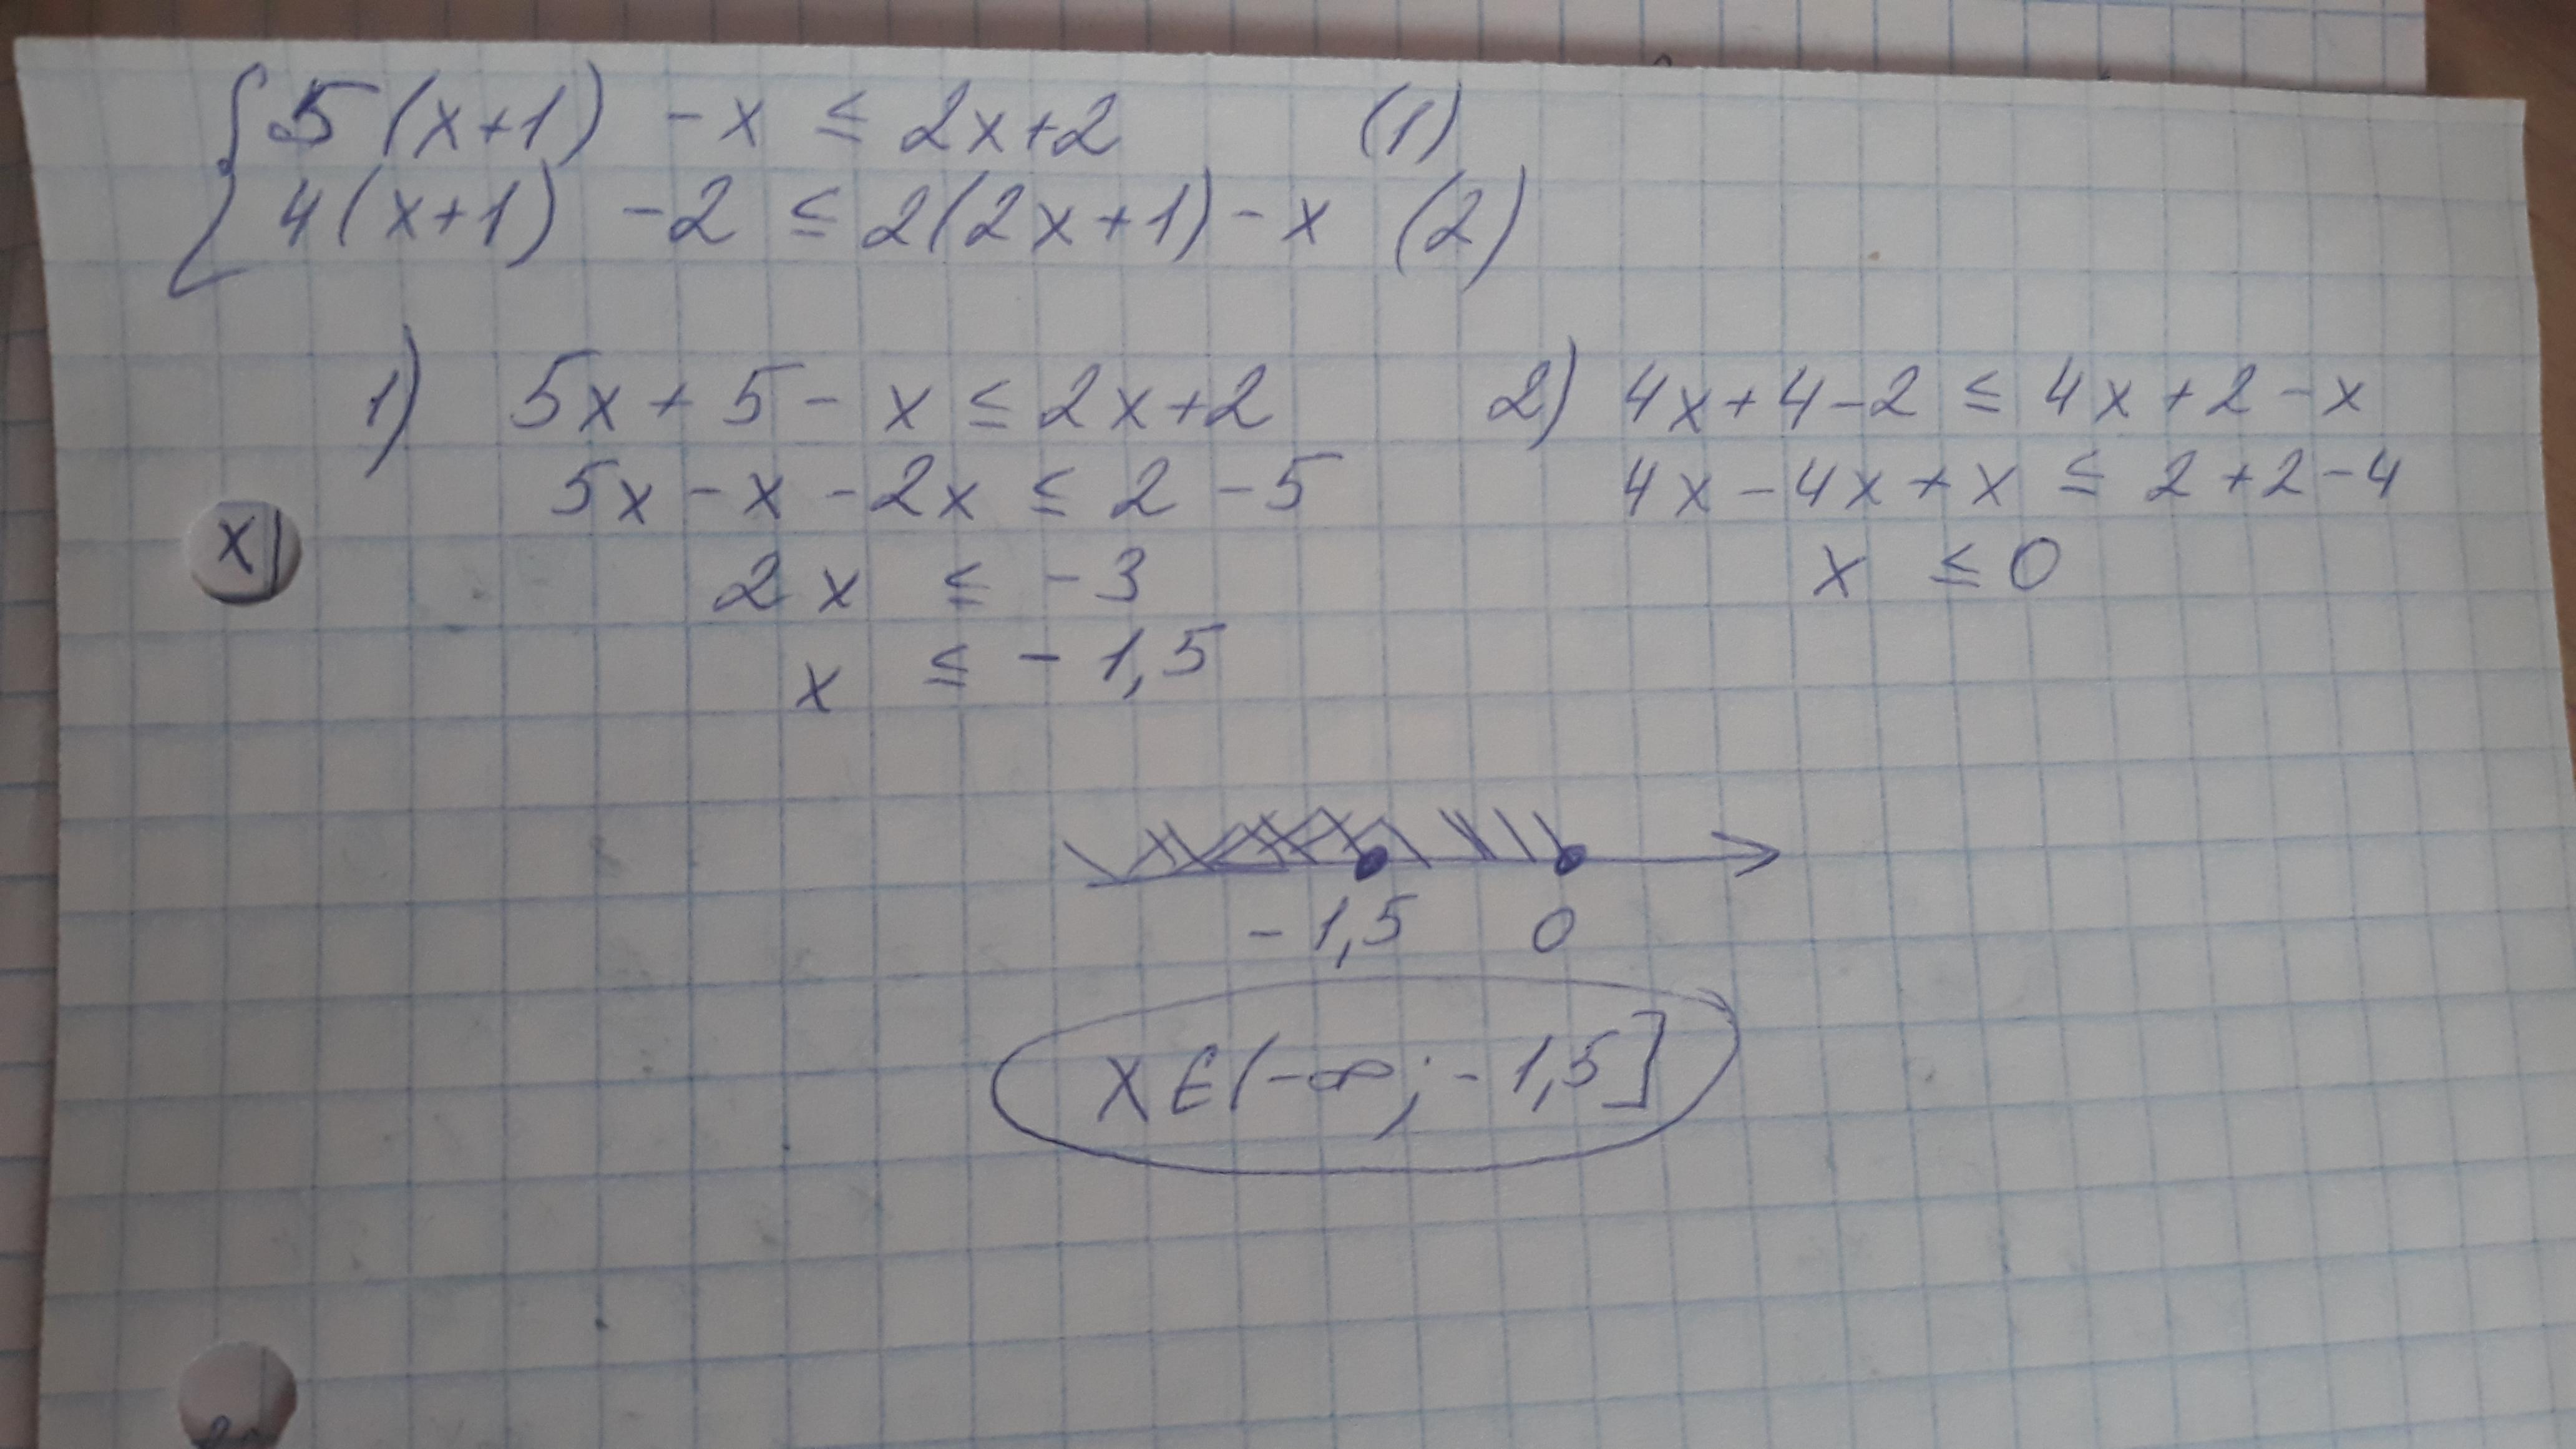 { 5(x+1) - x ≤ 2x+2 (1)
4(x+1) - 2 ≤ 2(2x+1) - x (2)
1) 5x + 5 - x ≤ 2x+2
5x - x - 2x ≤ 2 - 5
2x ≤ - 3
x ≤ - 1,5
2) 4x+4-2 ≤ 4x+2-x
4x-4x+x ≤ 2+2-4
x ≤ 0
x
-1,5 0
x ∈ (-∞; -1,5]